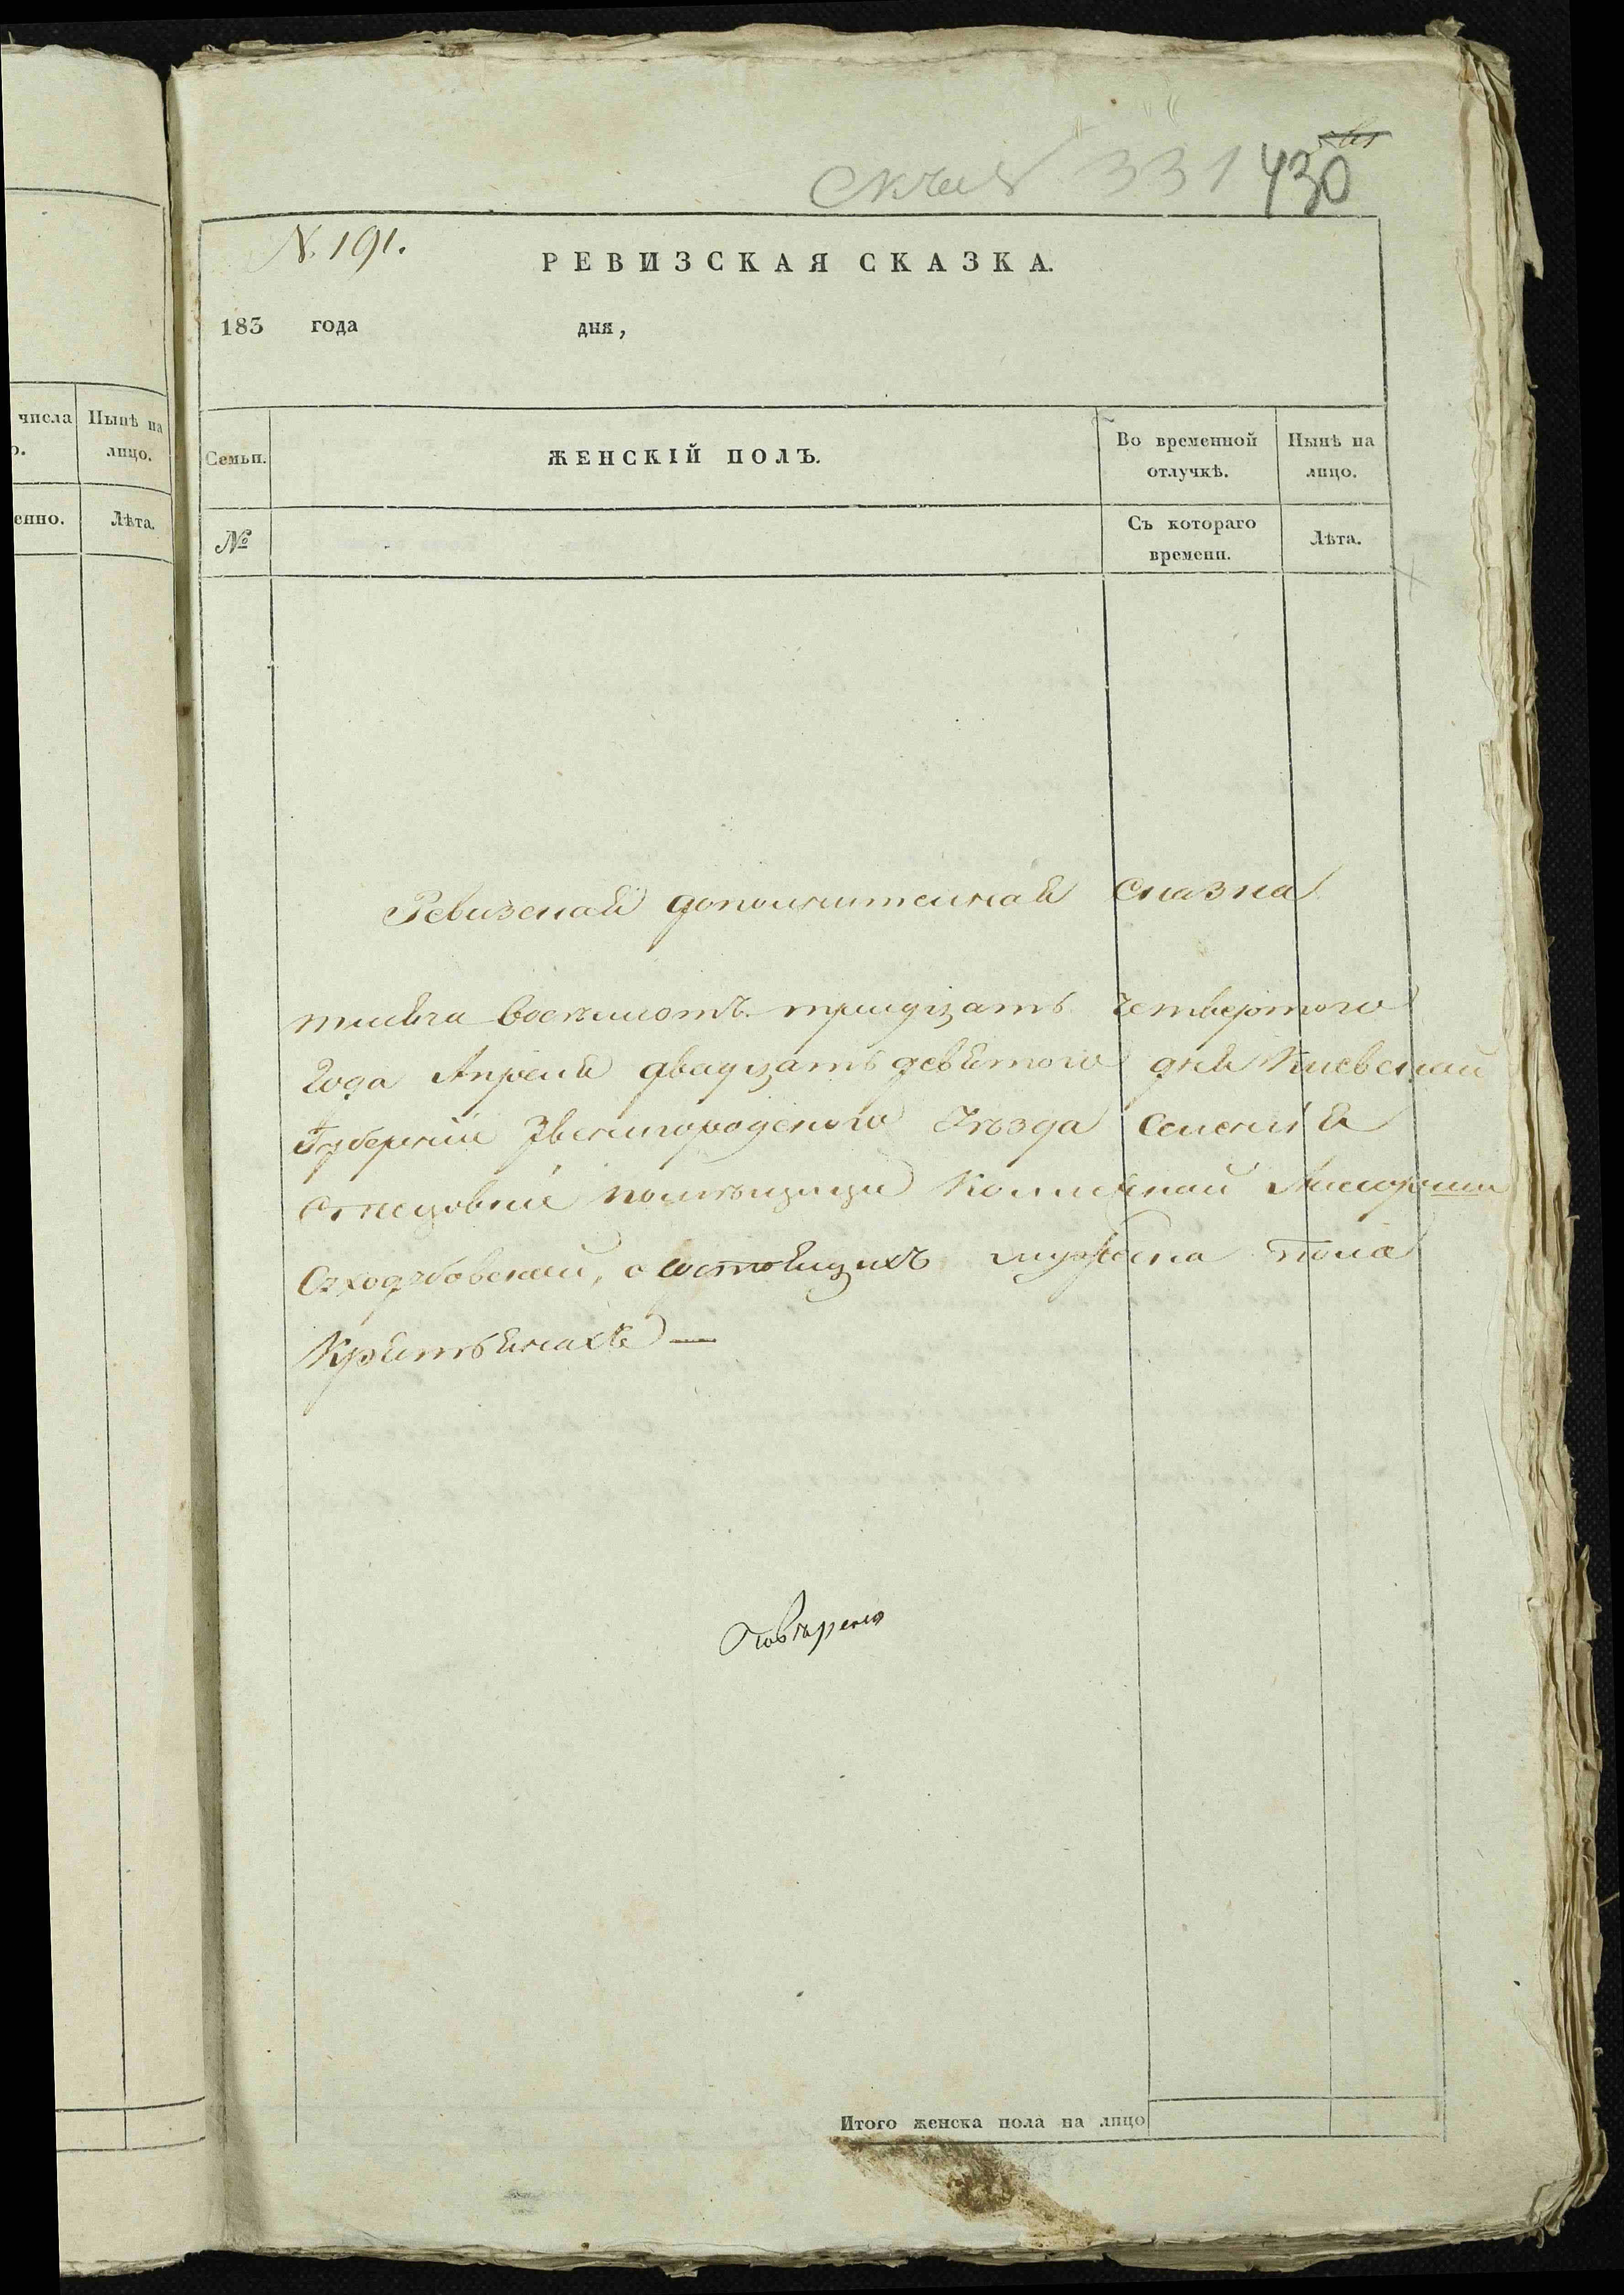 331 430
N. 191.
РЕВИЗСКАЯ СКАЗКА.
183 года дня,
числа Нынѣ на
о. лицо.
енно. Лѣта.
Семьи. ЖЕНСКІЙ ПОЛЪ. Во временной отлучкѣ. Нынѣ на лицо.
№ Съ котораго времени. Лѣта.
Ревизская дополнительная Сказка
тысяча восемьсотъ тридцать четвертого
года Апреля двадцать девятого дня Киевской
Губерніи Звенигородского Уѣзда Селенія
помѣщицы
состоящихъ мужеска пола
Крѣстьянахъ —
повѣрена
Итого женска пола на лицо